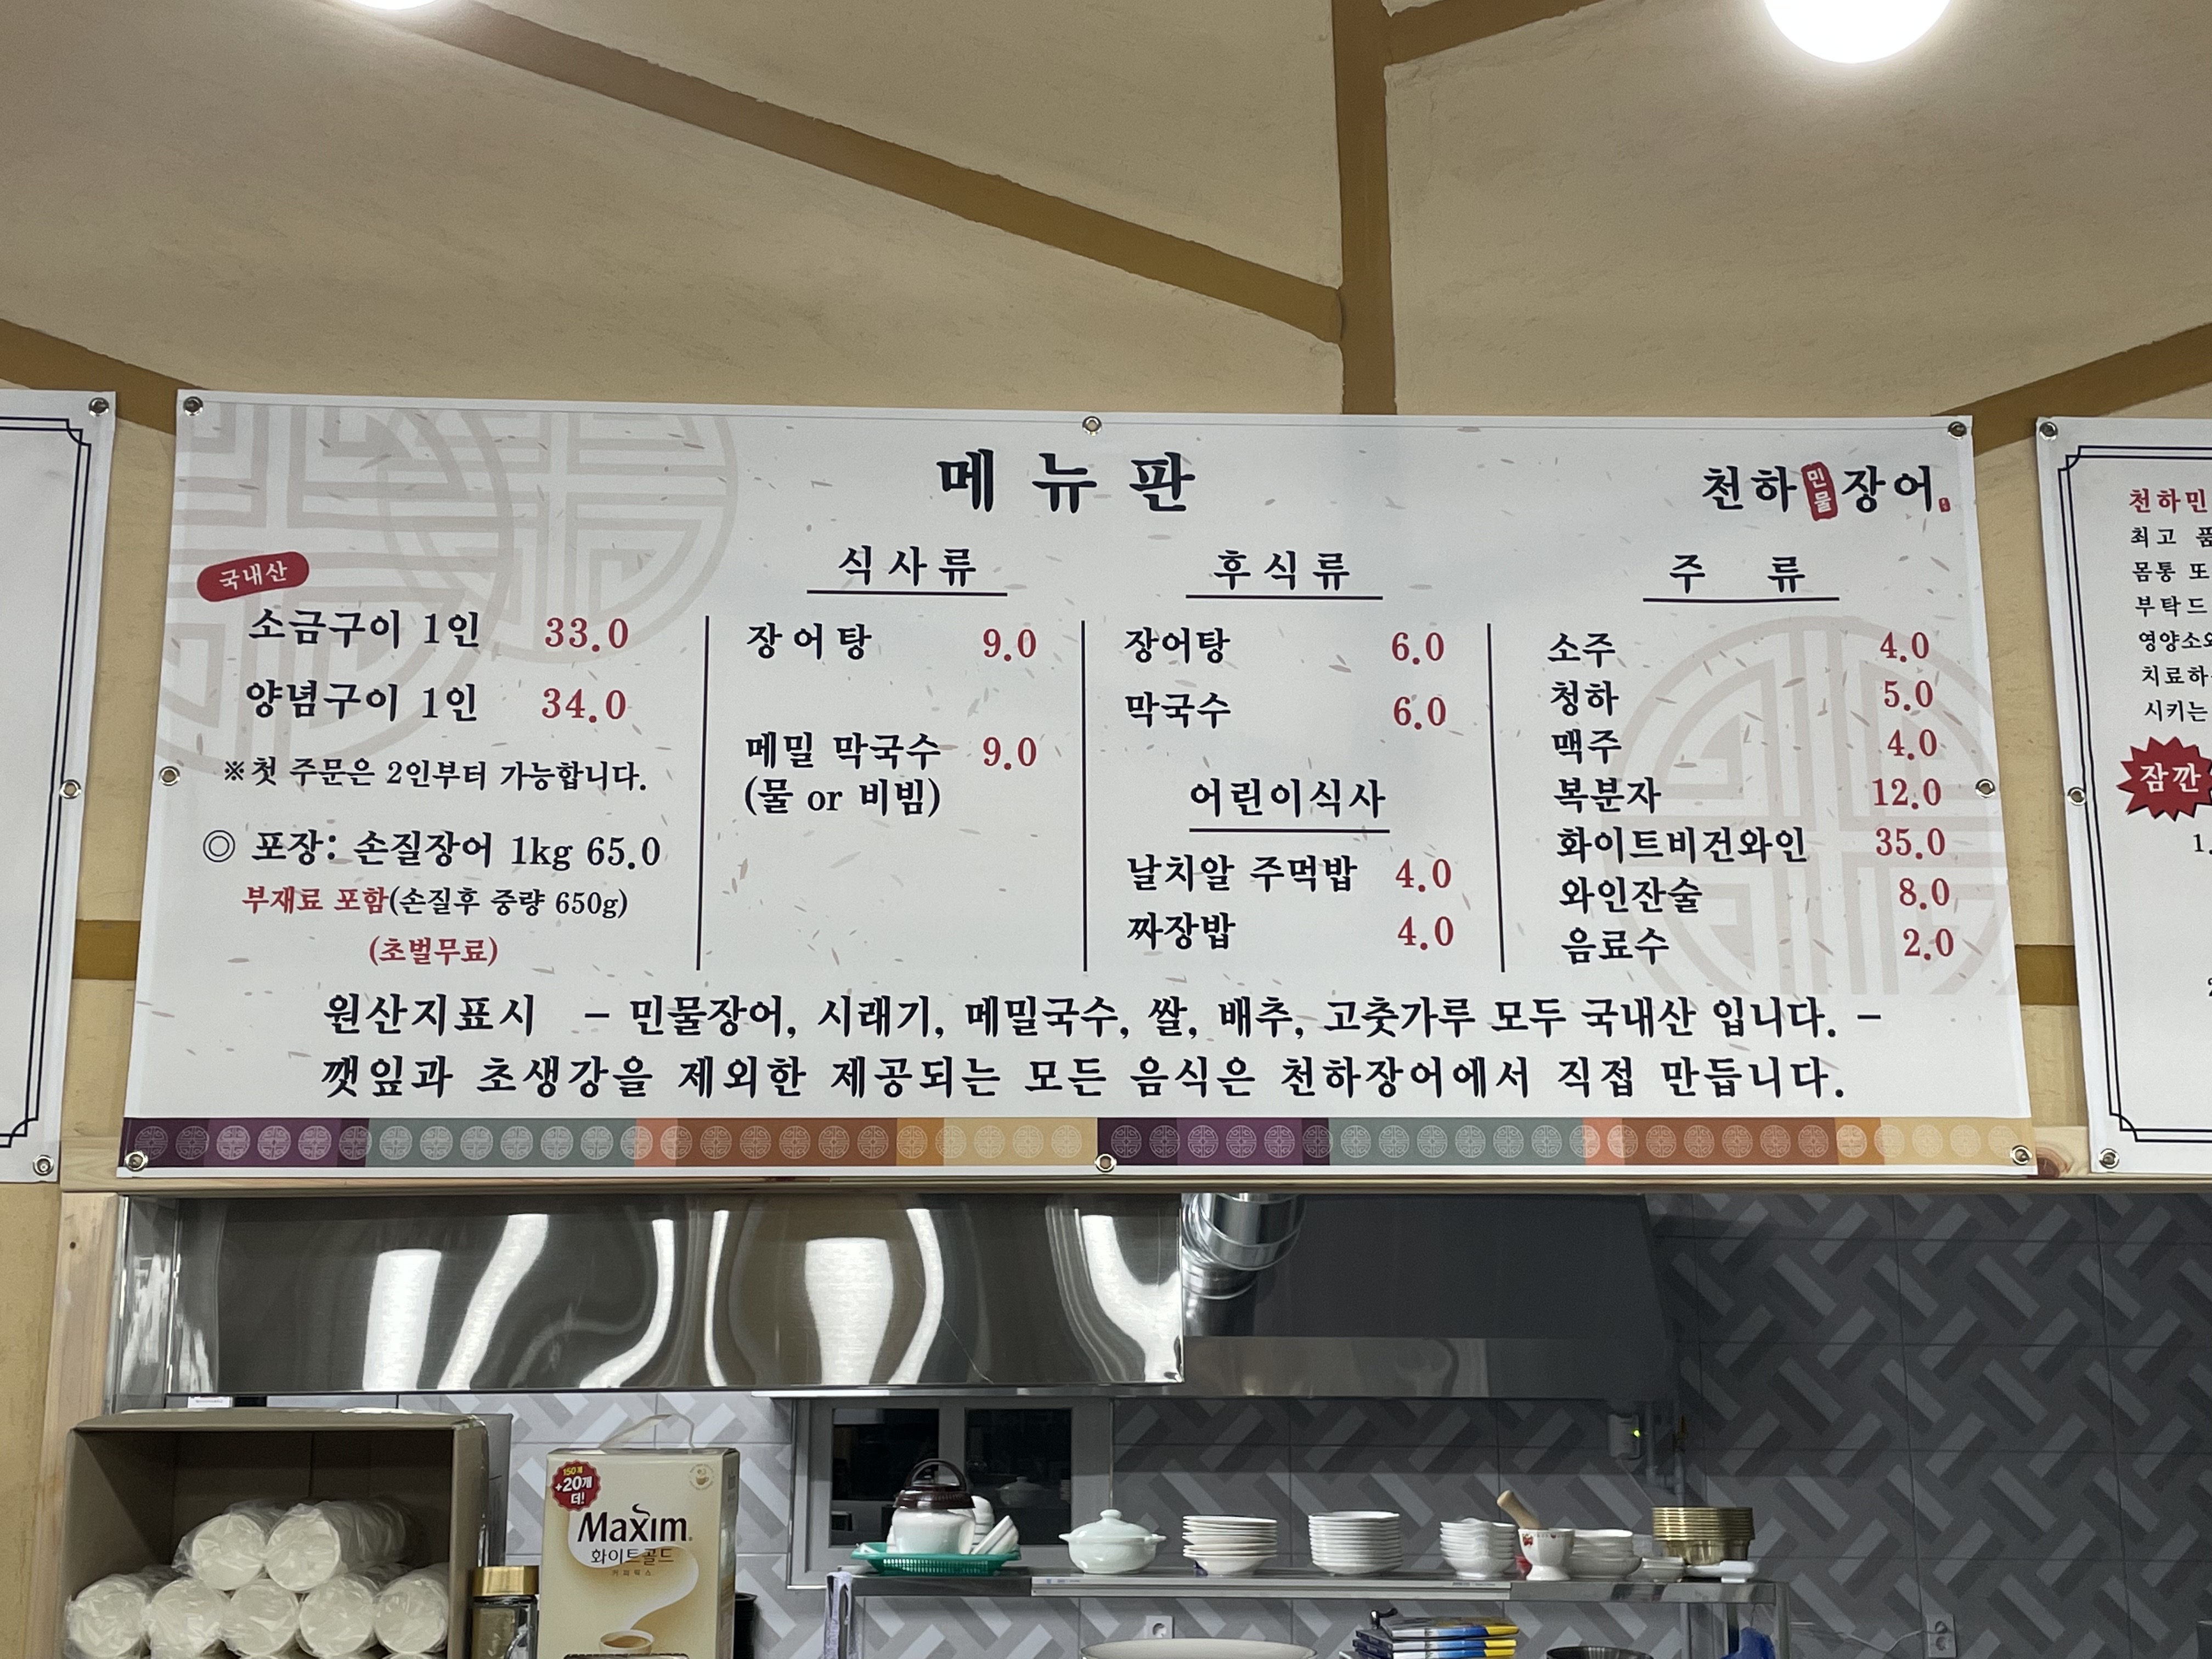 메뉴판
천하민물장어
국내산
소금구이 1인 33.0
양념구이 1인 34.0
※첫 주문은 2인부터 가능합니다.
◎ 포장: 손질장어 1kg 65.0
부재료 포함(손질후 중량 650g)
(초벌무료)
식사류
장어탕 9.0
메밀 막국수 9.0
(물 or 비빔)
후식류
장어탕 6.0
막국수 6.0
어린이식사
날치알 주먹밥 4.0
짜장밥 4.0
주 류
소주 4.0
청하 5.0
맥주 4.0
복분자 12.0
화이트비건와인 35.0
와인잔술 8.0
음료수 2.0
원산지표시 - 민물장어, 시래기, 메밀국수, 쌀, 배추, 고춧가루 모두 국내산 입니다. -
깻잎과 초생강을 제외한 제공되는 모든 음식은 천하장어에서 직접 만듭니다.
천하민
최고 품
몸통 또
부탁드
영양소와
치료하
시키는
잠깐
1.
150개
+20개
더!
Maxim
화이트골드
커피믹스